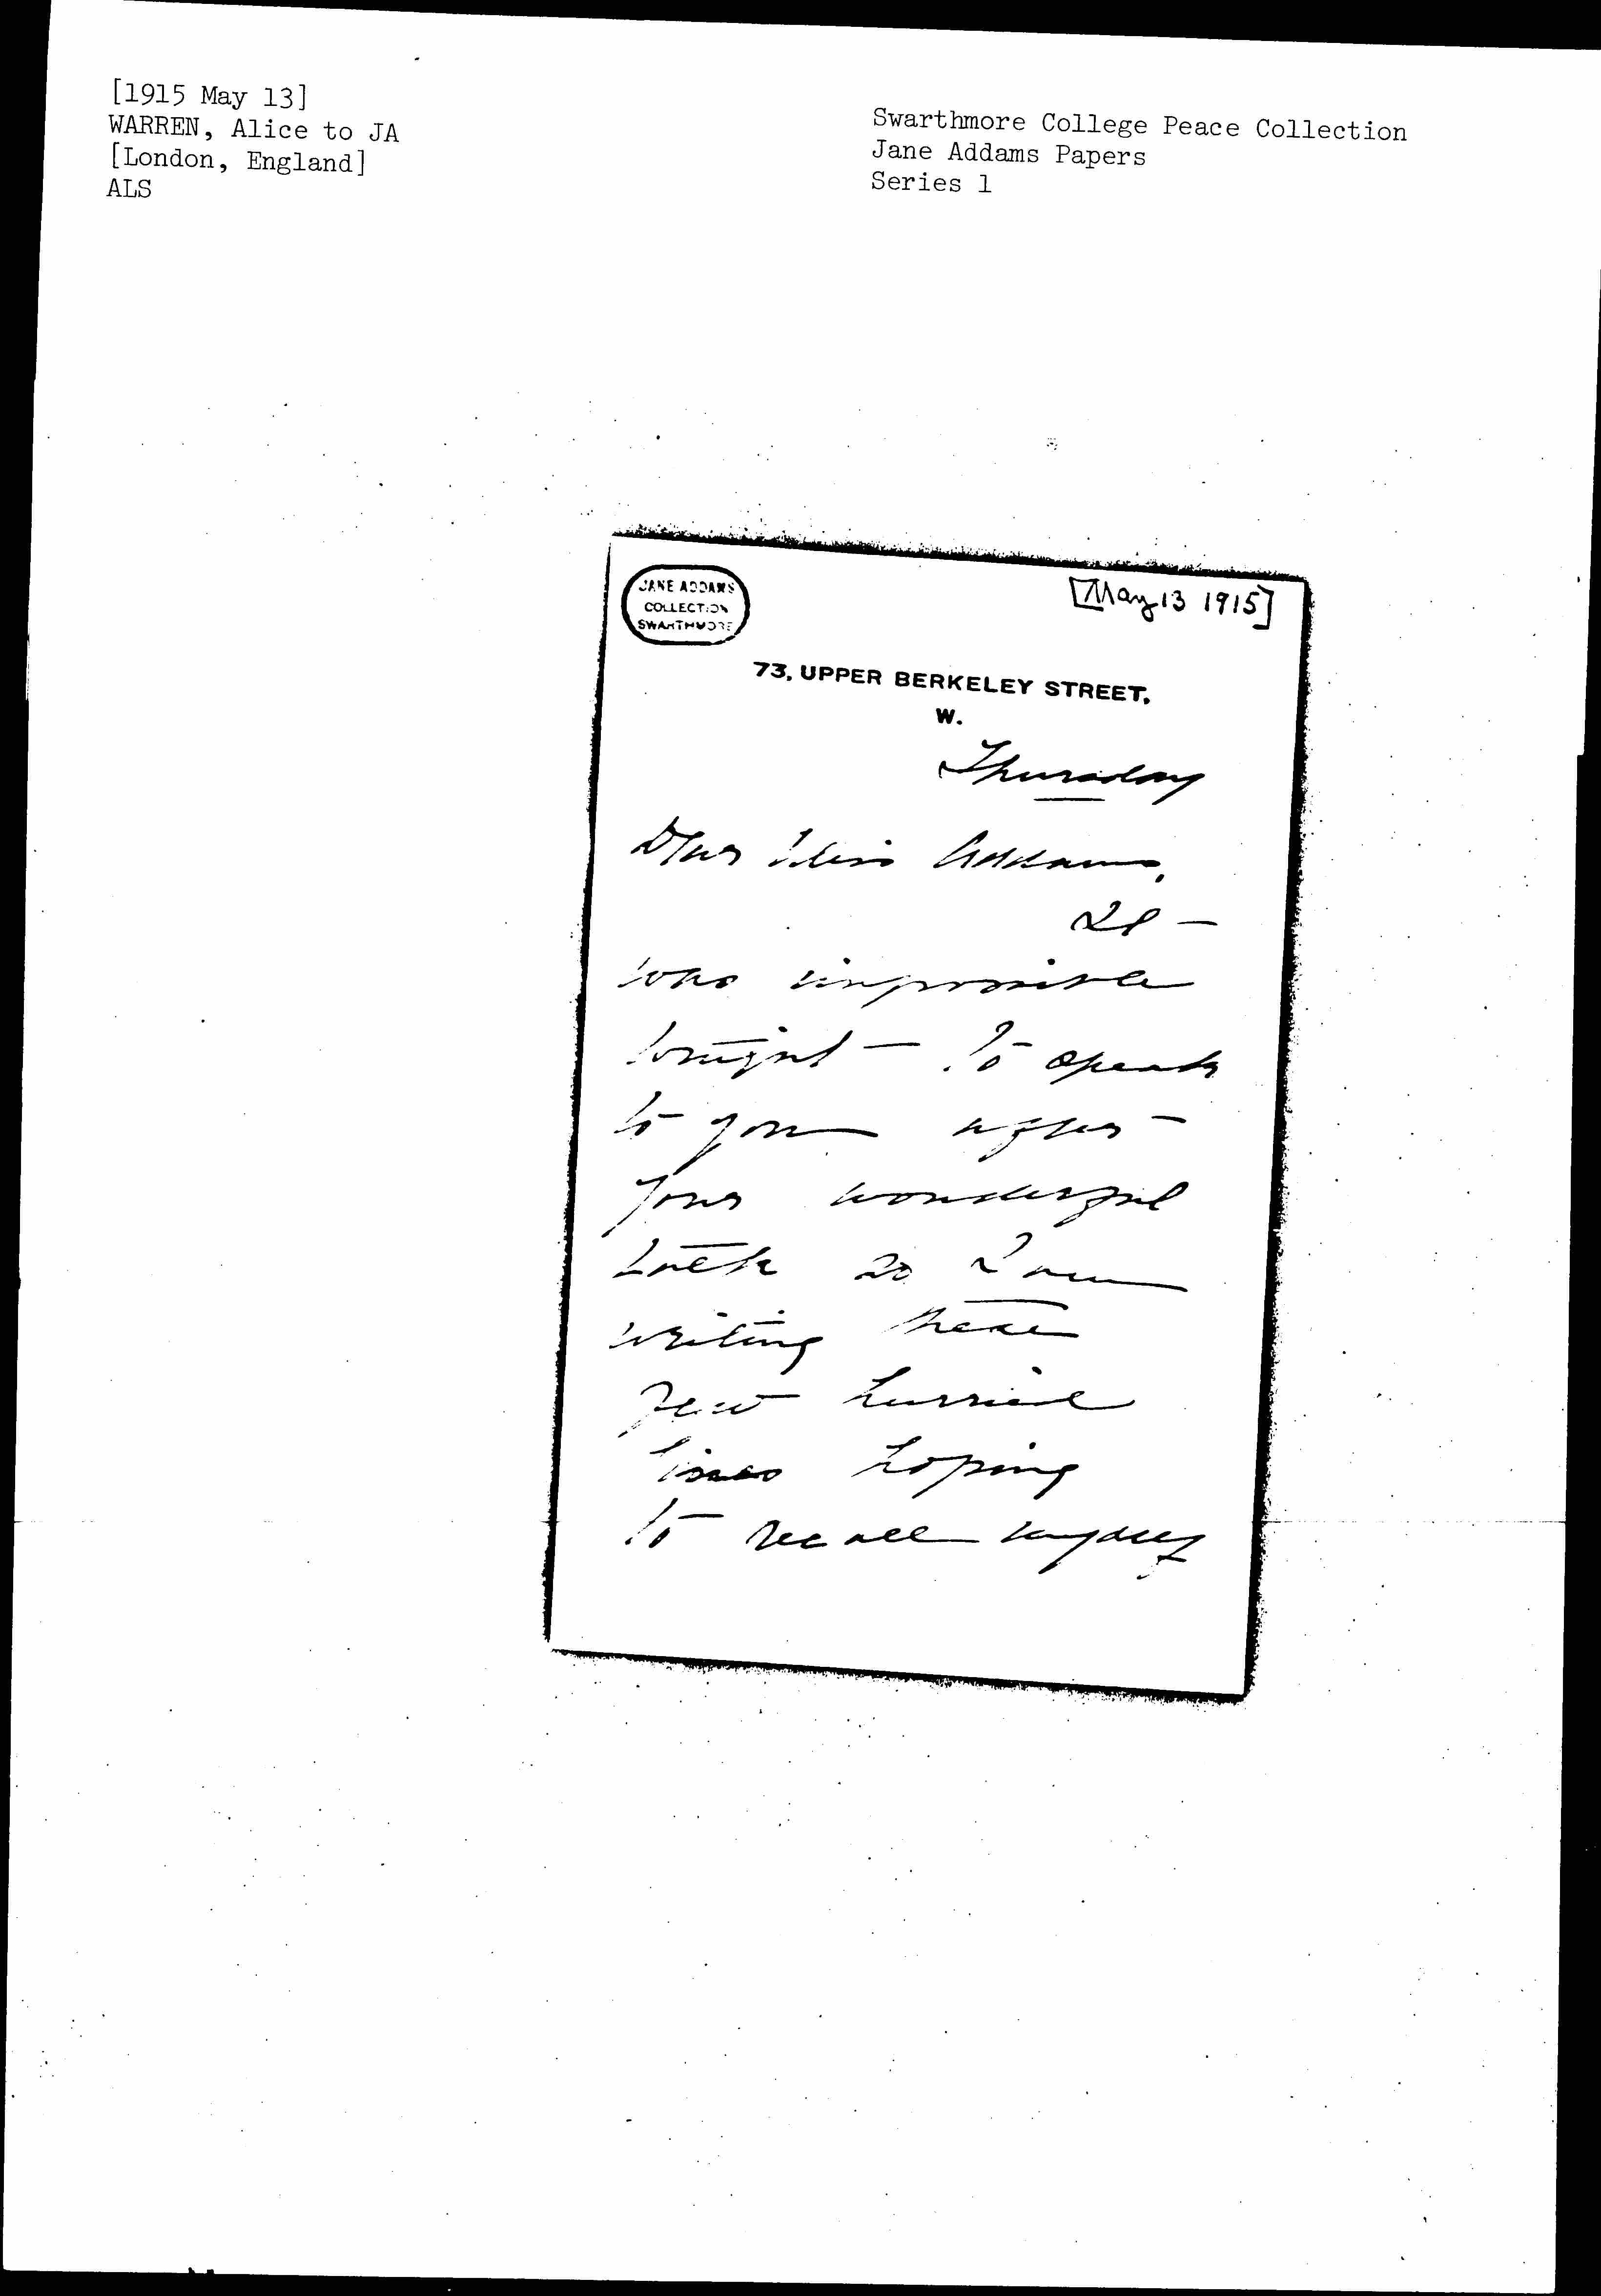 [1915 May 13]
WARREN, Alice to JA
[London, England]
ALS
Swarthmore College Peace Collection
Jane Addams Papers
Series 1
JANE ADDAMS
COLLECTION
SWARTHMORE
[May 13 1915]
73, UPPER BERKELEY STREET,
W.
Thursday
Dear Miss Addams,
It -
was impossible
tonight - to speak
to you after
your wonderful
talk so I am
writing these
few hurried
lines hoping
to recall myself